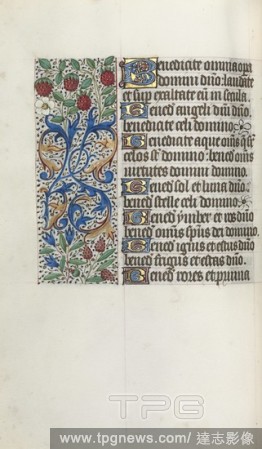 Benedicite omnia opa
domini dño: laudate
et supexaltate eũ in secula.
Bened angeli dñi dño:
benedicite celi domino
Benedicite aque oms q̃
celos sẽ domino: bened oms
virtutes domini domino.
Bened sol et luna dño:
bened stelle celi domino.
Bened ymber et ros dño
bened oms sp̃us dei domino.
Bened ignis et estus dño:
bened frigus et estas dño.
Bened rores et pruina
TPG
www.tpgnews.com/ 達志影像